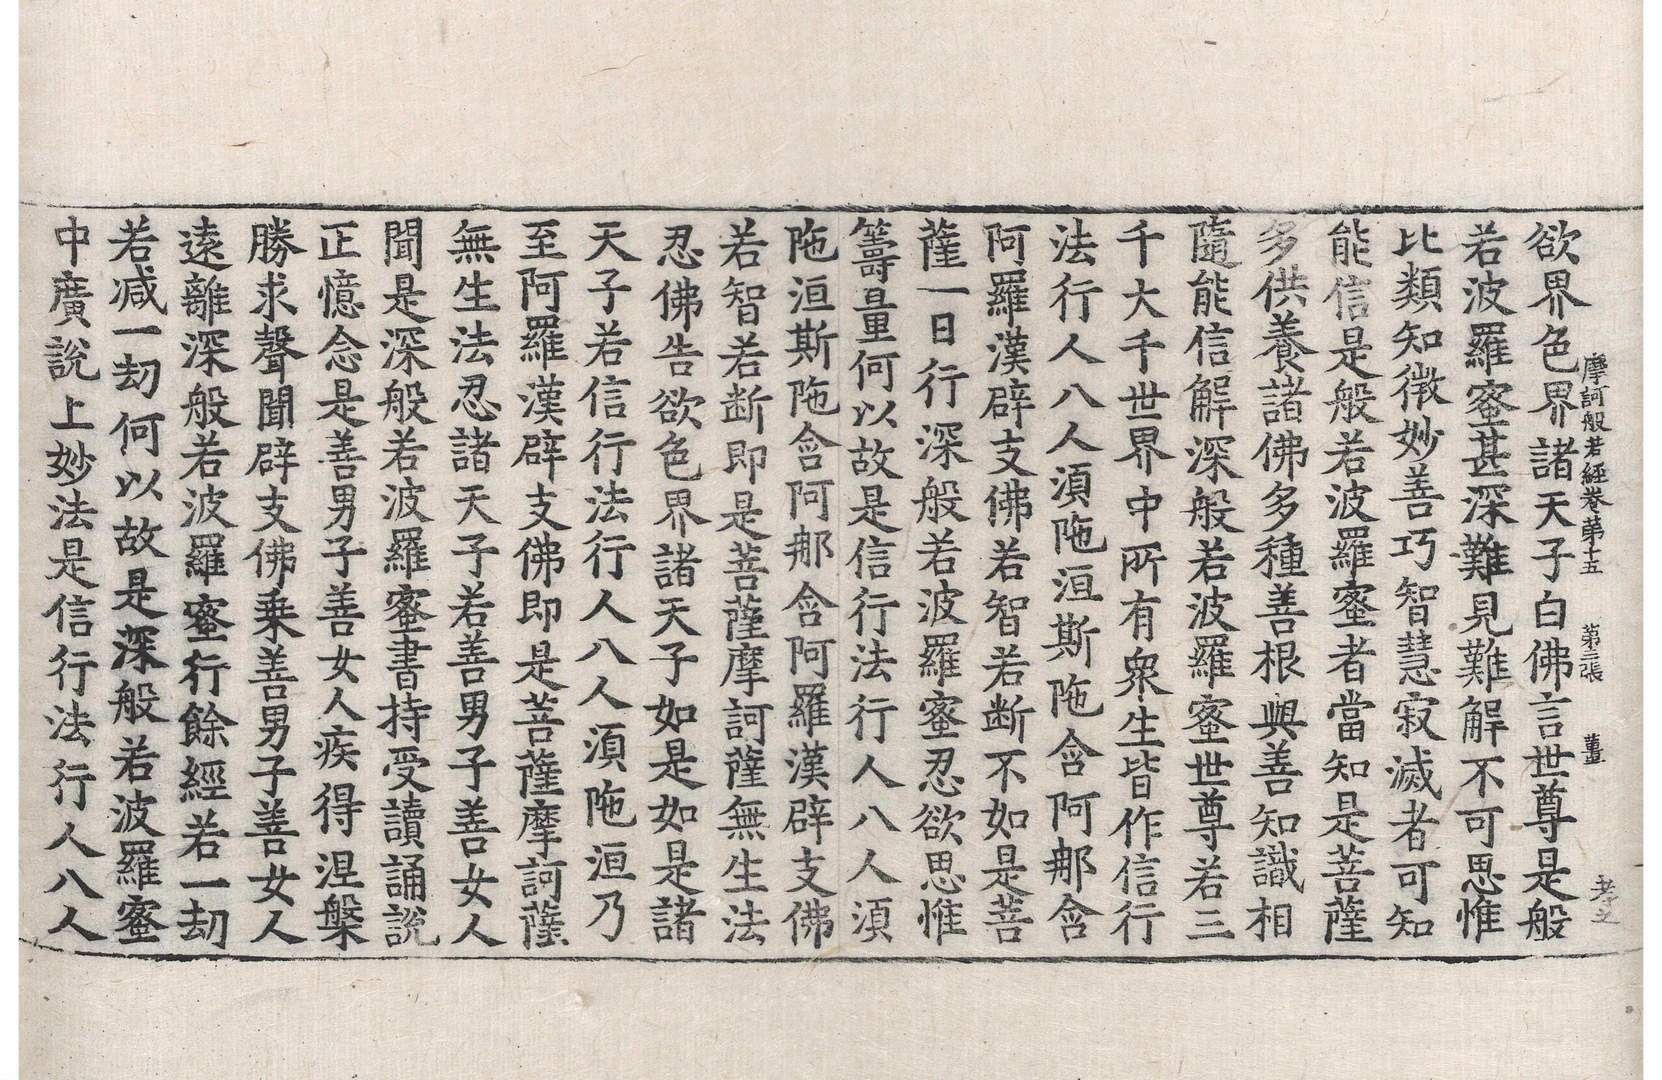 摩訶般若經卷第十五 第二張 薑
欲界色界諸天子白佛言世尊是般
若波羅蜜甚深難見難解不可思惟
比類知微妙善巧智慧寂滅者可知
能信是般若波羅蜜者當知是菩薩
多供養諸佛多種善根與善知識相
隨能信解深般若波羅蜜世尊若三
千大千世界中所有衆生皆作信行
法行人八人湏陁洹斯陁含阿那含
阿羅漢辟支佛若智若断不如是菩
薩一日行深般若波羅蜜忍欲思惟
籌量何以故是信行法行人八人湏
陁洹斯陁含阿那含阿羅漢辟支佛
若智若断即是菩薩摩訶薩無生法
忍佛告欲色界諸天子如是如是諸
天子若信行法行人八人湏陁洹乃
至阿羅漢辟支佛即是菩薩摩訶薩
無生法忍諸天子若善男子善女人
聞是深般若波羅蜜書持受讀誦說
正憶念是善男子善女人疾得涅槃
勝求聲聞辟支佛乗善男子善女人
遠離深般若波羅蜜行餘經若一劫
若减一劫何以故是深般若波羅蜜
中廣說上妙法是信行法行人八人